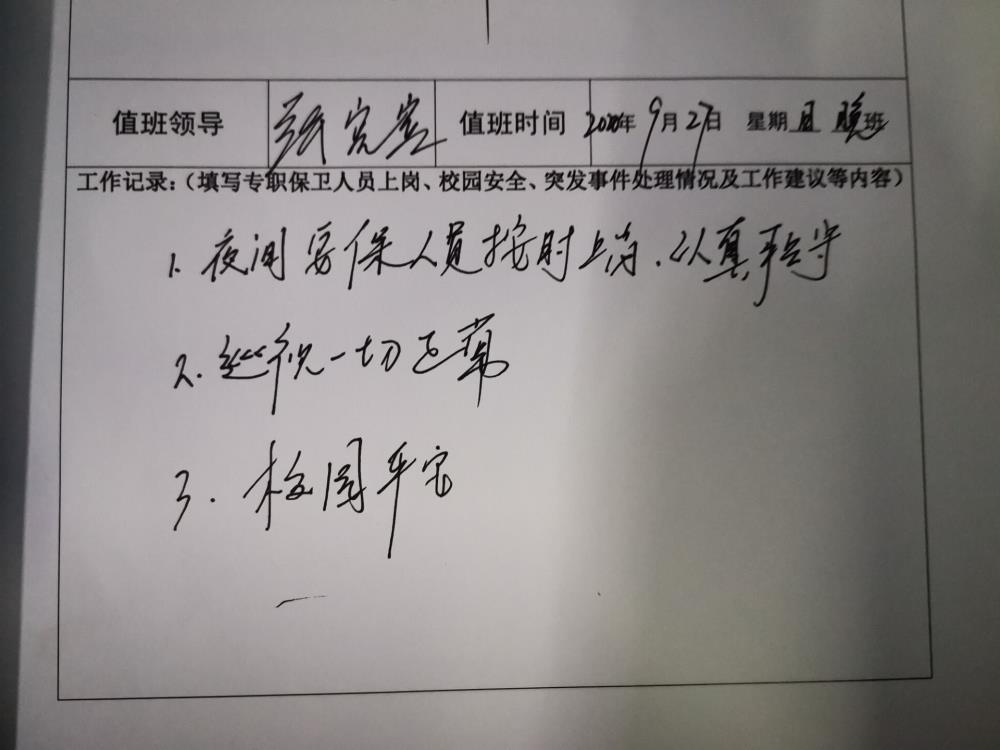 值班领导 张宪宾 值班时间 2020年9月27日 星期日 晚班
工作记录：（填写专职保卫人员上岗、校园安全、突发事件处理情况及工作建议等内容）
1. 夜间安保人员按时上岗、认真严守
2. 巡视一切正常
3. 校园平安